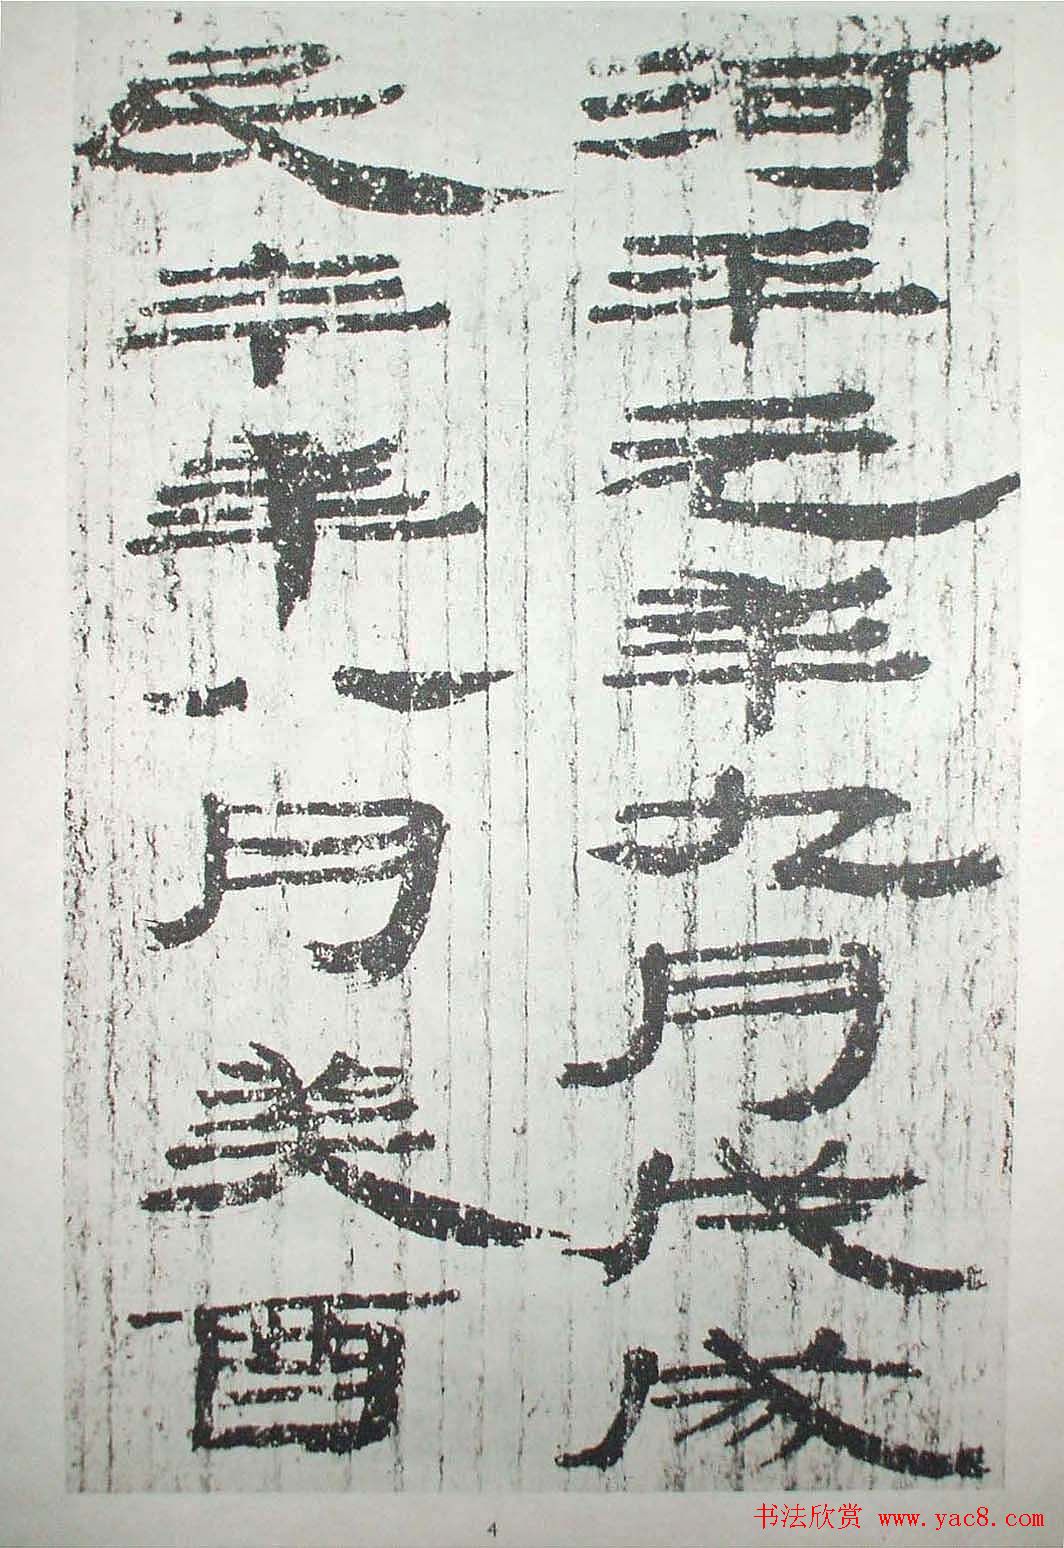 河平元年九月戊戌
年八月癸酉
4
书法欣赏 www.yac8.com